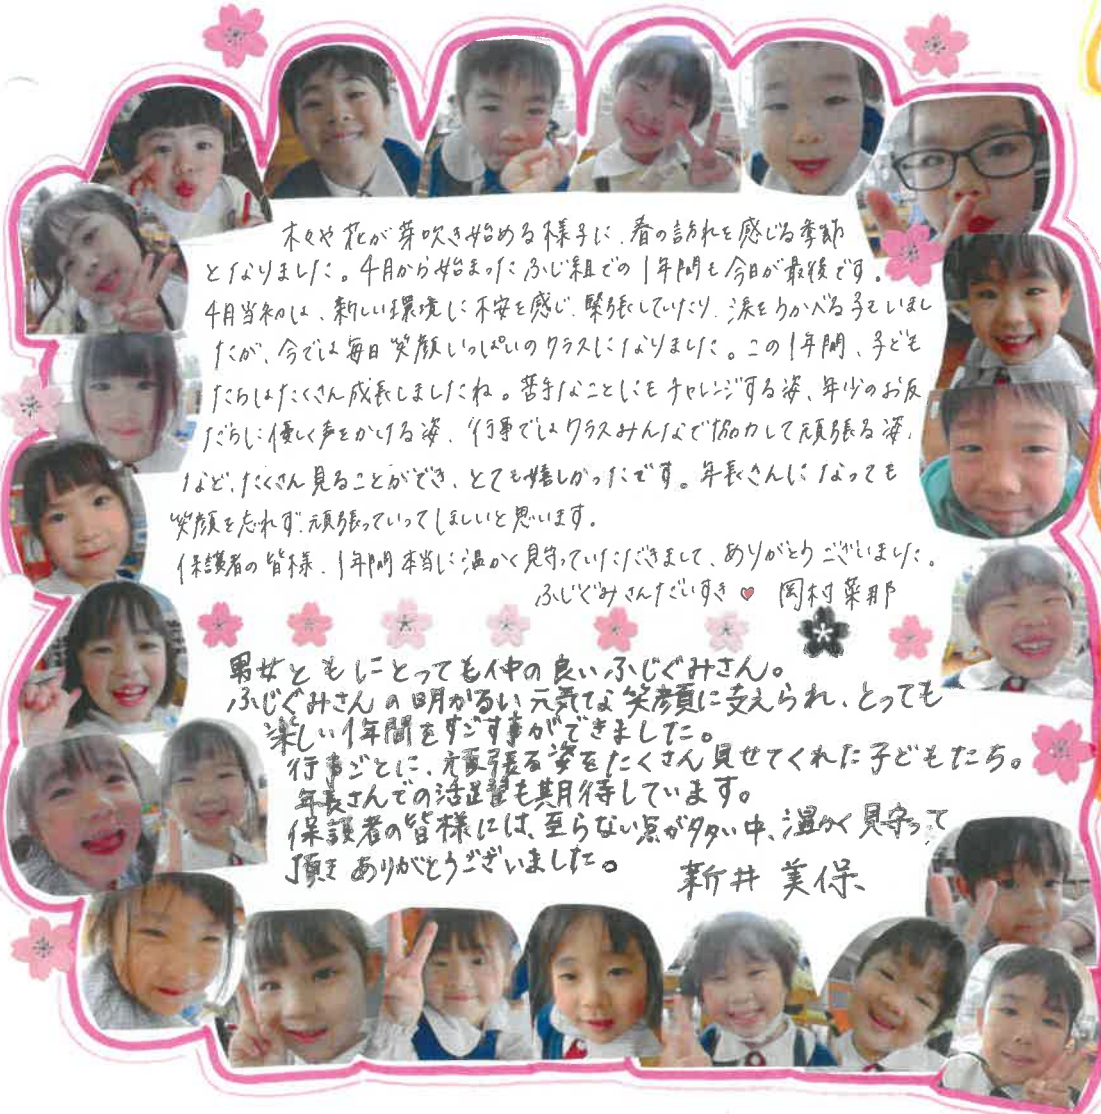 木々や花が芽吹き始める様子に、春の訪れを感じる季節
となりました。4月から始まったふじ組での1年間も今日が最後です。
4月当初は、新しい環境に不安を感じ、緊張していたり、涙をうかべる子もいまし
たが、今では毎日笑顔いっぱいのクラスになりました。この1年間、子ども
たちはたくさん成長しましたね。苦手なことにもチャレンジする姿、年少のお友
だちに優しく声をかける姿、行事ではクラスみんなで協力して頑張る姿、
など、たくさん見ることができ、とても嬉しかったです。年長さんになっても
笑顔を忘れず、頑張っていってほしいと思います。
保護者の皆様、1年間本当に温かく見守っていただきまして、ありがとうございました。
ふじぐみさんだいすき♥ 岡村菜那
男女ともにとっても仲の良いふじぐみさん。
ふじぐみさんの明かるい元気な笑顔に支えられ、とっても
楽しい1年間をすごす事ができました。
行事ごとに、頑張る姿をたくさん見せてくれた子どもたち。
年長さんでの活躍も期待しています。
保護者の皆様には、至らない点が多い中、温かく見守って
頂き ありがとうございました。 新井 美保